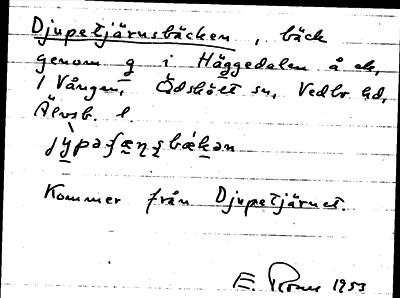 Djupetjärnsbäcken, bäck
genom g i Häggedalen å ek.
1 Vången, Ödskölt sn, Vedbo hd,
Älvsb. l.
Kommer från Djupetjärnet.
E. 1953